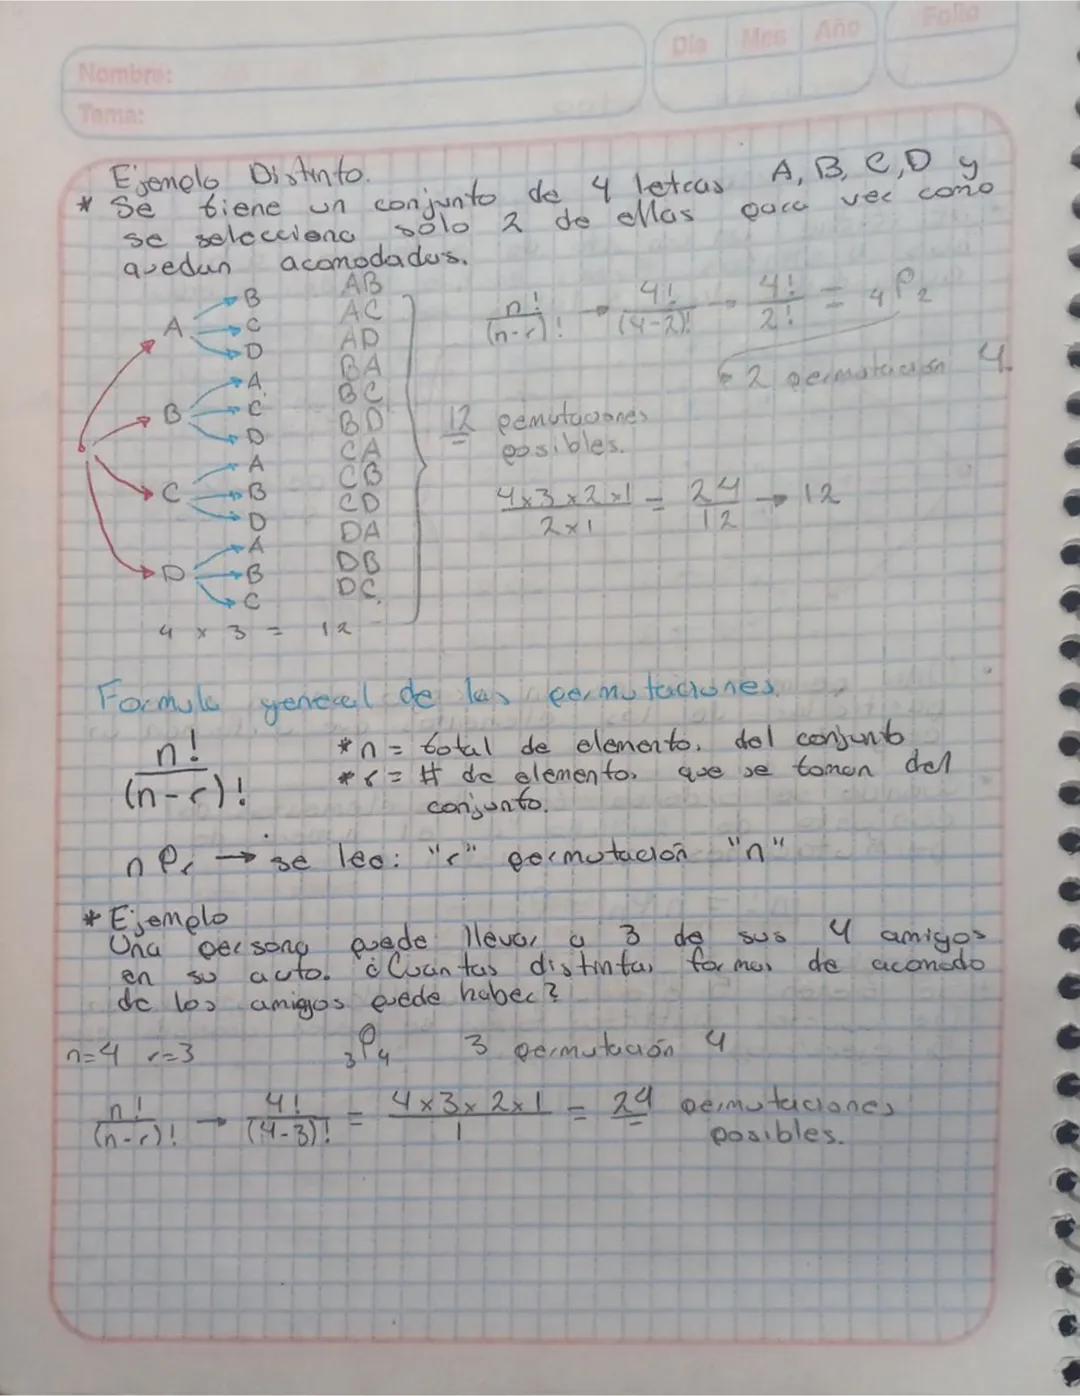 Nombre:
Tema:
Día Mes Año
Folio
Ejemplo Distinto.
* Se tiene un conjunto de 4 letras A, B, C, D y
se selecciona solo 2 de ellas para ver como
quedan acomodadas.
A B AB
C AC
D AD
B A BA
C BC
D BD
C A CA
B CB
D CD
D A DA
B DB
C DC
4 x 3 = 12
n!/(n-r)! → 4!/(4-2)! → 4!/2! = 4P2
2 permutación 4.
12 pemutaciones
posibles.
4x3x2x1/2x1 = 24/12 → 12
Formula general de las permutaciones.
n!/(n-r)!
*n = total de elementos del conjunto
*r = # de elementos que se toman del
conjunto.
nPr → se lee: "r" permutación "n"
* Ejemplo
Una persona puede llevar a 3 de sus 4 amigos
en su auto. ¿Cuantas distintas formas de acomodo
de los amigos puede haber?
n=4 r=3 3P4 3 permutación 4
n!/(n-r)! → 4!/(4-3)! = 4x3x2x1/1 = 24 permutaciones
posibles.